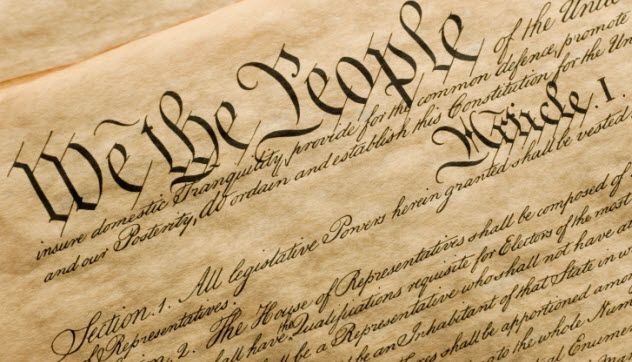 We the People of the Unite
insure domestic Tranquility, provide for the common defence, promote
and our Posterity, do ordain and establish this Constitution for the Un
Article. I.
Section. 1. All legislative Powers herein granted shall be vested
of Representatives.
Section. 2. The House of Representatives shall be composed of
the Qualifications requisite for Electors of the most
be a Representative who shall not have at
be an Inhabitant of that State in w
shall be apportioned amo
to the whole Num